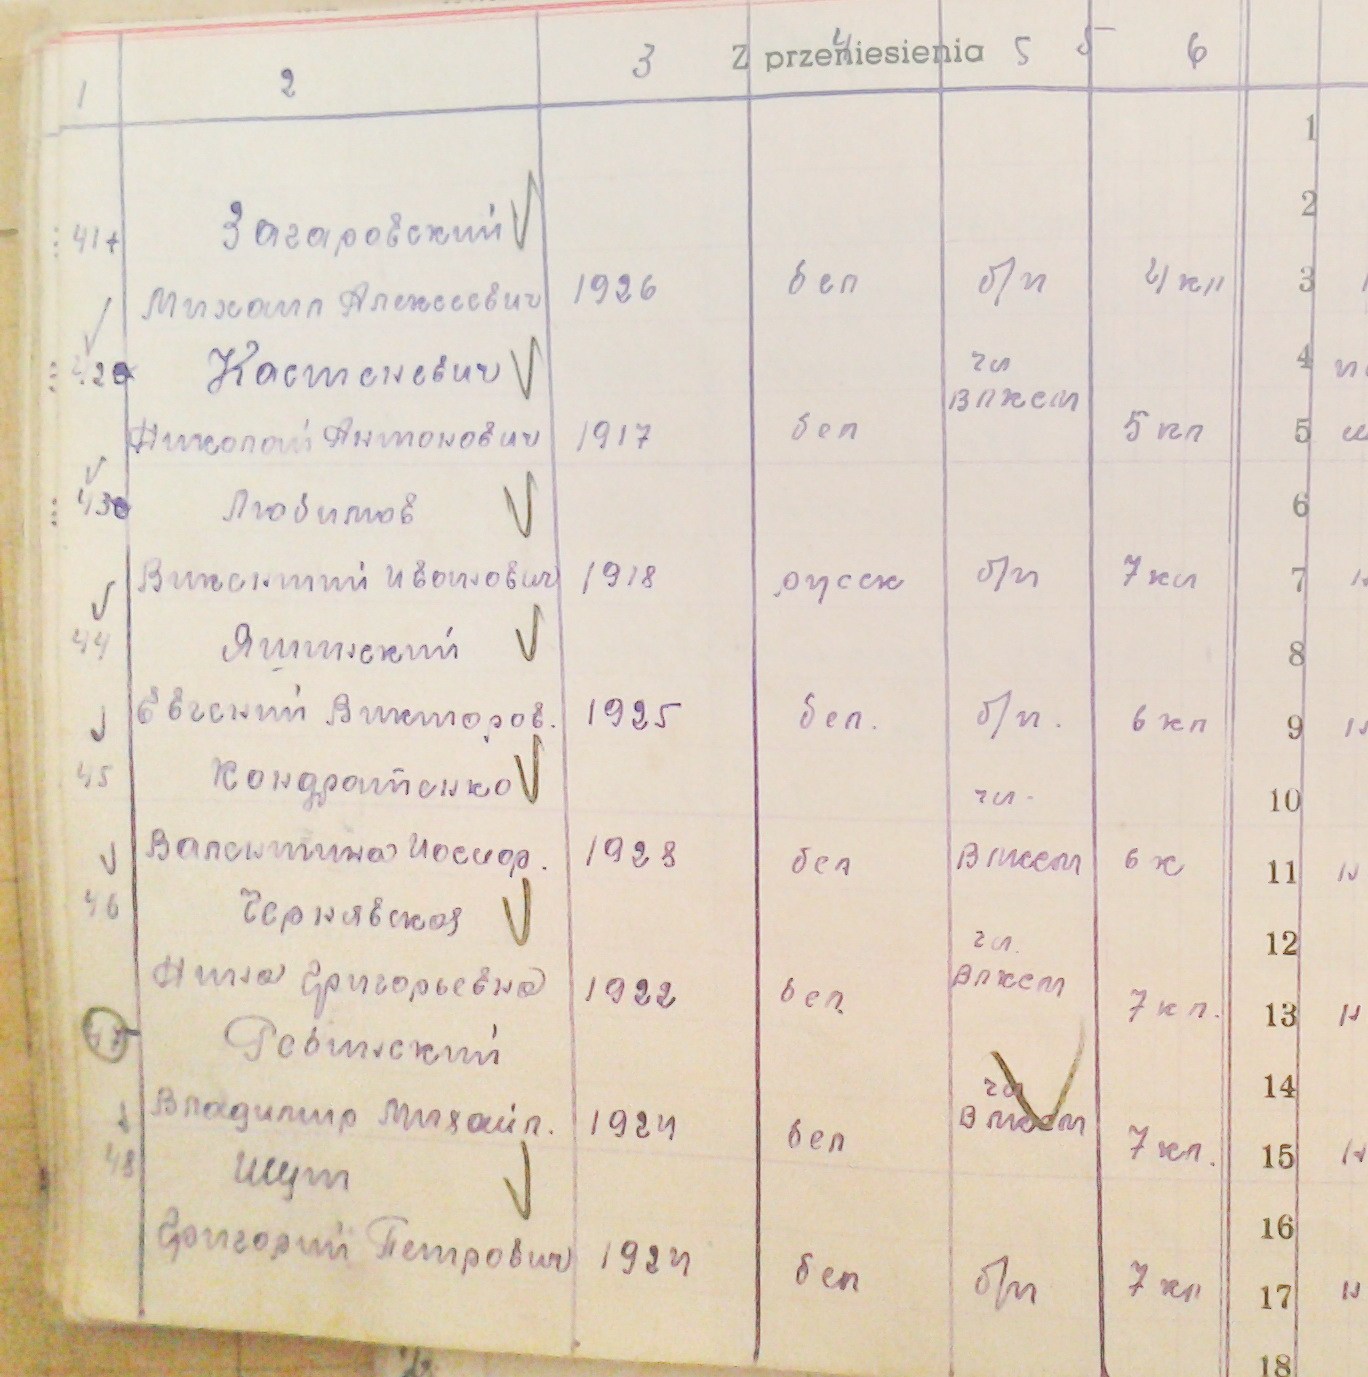 1 2 3 Z przeniesienia 4 5 5 6
1
2
41+ Загаровский
Михаил Алексеевич 1926 бел б/п 4 кл 3
42 Кастеневич чл 4
ВЛКСМ
Николай Антонович 1917 бел 5 кл 5
43 Любимов 6
Викентий Иванович 1918 русск б/п 7 кл 7
44 Яшинский 8
Евгений Викторов. 1925 бел. б/п. 6 кл 9
45 Кондратенко чл. 10
Валентина Иосифор. 1928 бел ВЛКСМ 6 к 11
46 Чернявская 12
чл.
Нина Григорьевна 1922 бел. ВЛКСМ 7 кл. 13
47 Ревинский 14
чл
Владимир Михайл. 1924 бел ВЛКСМ 7 кл. 15
48 Шут 16
Григорий Петрович 1924 бел б/п 7 кл 17
18